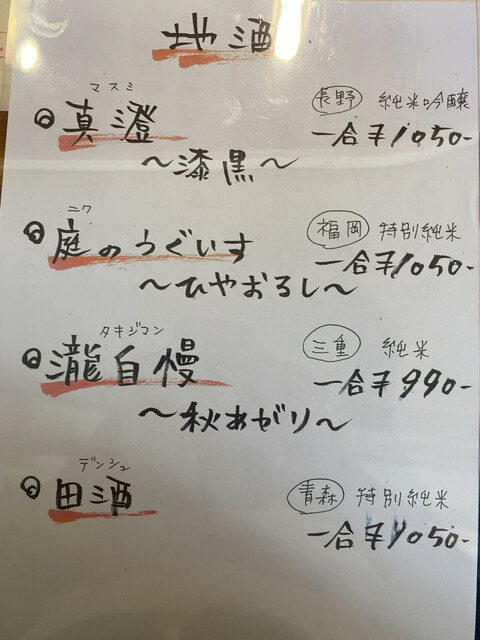 地酒
マスミ
◎真澄
長野 純米吟醸
〜漆黒〜
一合¥1050-
ニワ
◎庭のうぐいす
福岡 特別純米
〜ひやおろし〜
一合¥1050-
タキジマン
◎瀧自慢
三重 純米
〜秋あがり〜
一合¥990-
デンシュ
◎田酒
青森 特別純米
一合¥1050-